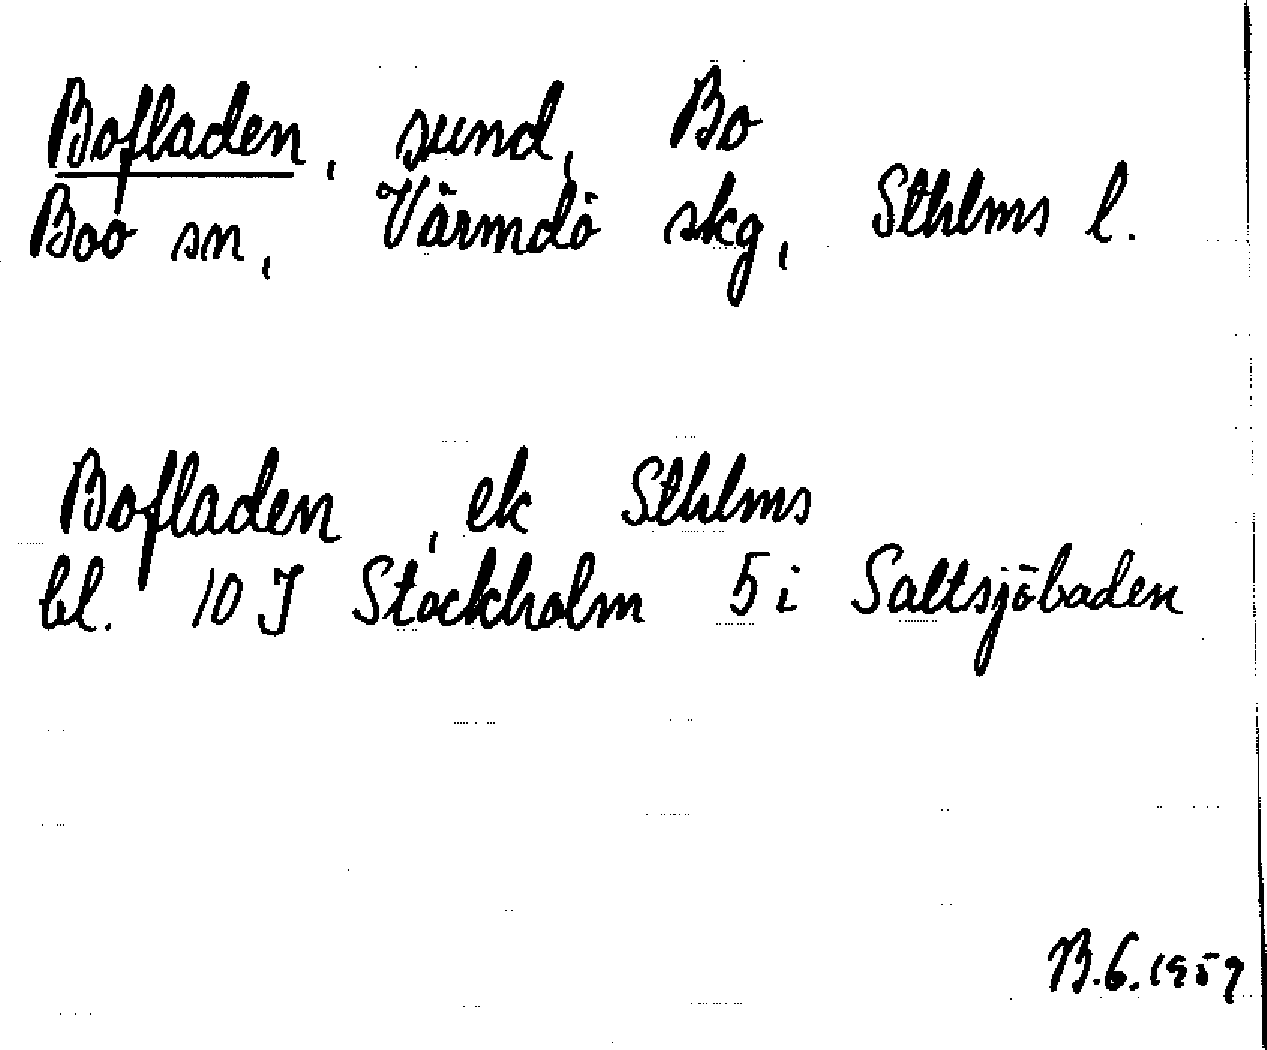 Bofladen, sund, Bo
Boo sn, Värmdö skg, Sthlms l.
Bofladen, ek Sthlms
bl. 10 J Stockholm 5 i Saltsjöbaden
B.6.1959